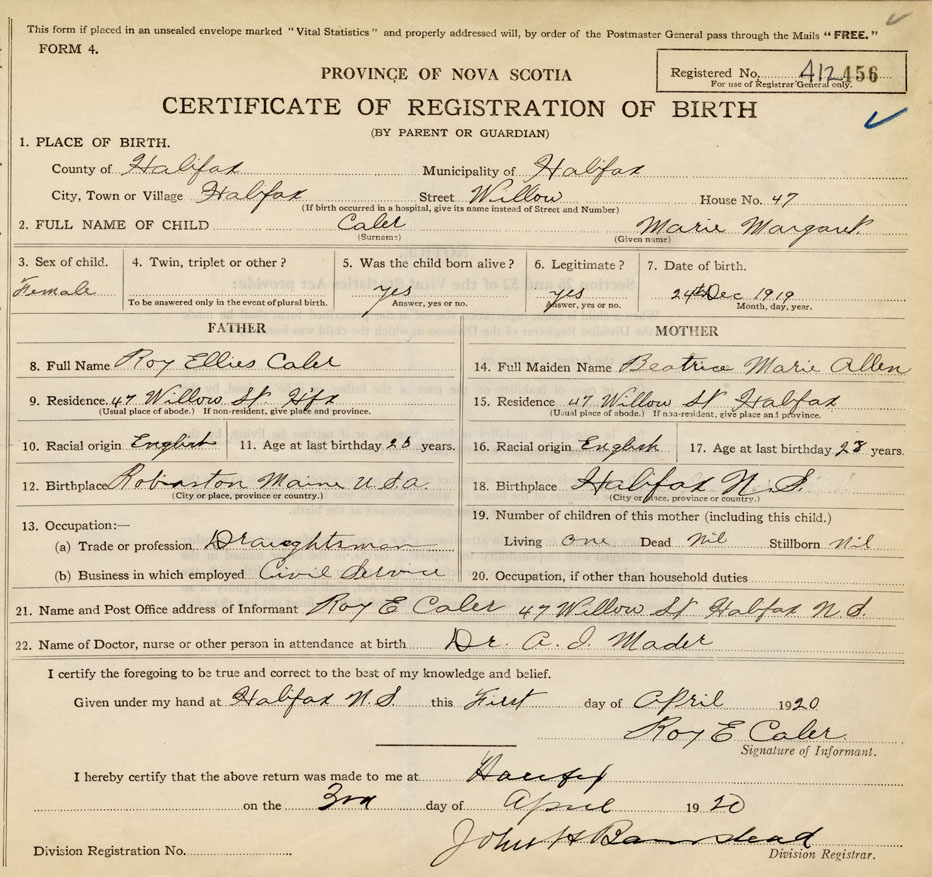 This form if placed in an unsealed envelope marked "Vital Statistics" and properly addressed will, by order of the Postmaster General pass through the Mails "FREE."
FORM 4.
PROVINCE OF NOVA SCOTIA
Registered No. 412 456
For use of Registrar General only.
CERTIFICATE OF REGISTRATION OF BIRTH
(BY PARENT OR GUARDIAN)
1. PLACE OF BIRTH.
County of Halifax Municipality of Halifax
City, Town or Village Halifax Street Willow House No. 47
(If birth occurred in a hospital, give its name instead of Street and Number)
2. FULL NAME OF CHILD Caler Marie Margaret
(Surname) (Given name)
3. Sex of child. 4. Twin, triplet or other? 5. Was the child born alive? 6. Legitimate? 7. Date of birth.
Female yes yes 24th Dec 1919
To be answered only in the event of plural birth. Answer, yes or no. Answer, yes or no. Month, day, year.
FATHER MOTHER
8. Full Name Roy Ellies Caler 14. Full Maiden Name Beatrice Marie Allen
9. Residence. 47 Willow St Hfx 15. Residence 47 Willow St Halifax
(Usual place of abode.) If non-resident, give place and province. (Usual place of abode.) If non-resident, give place and province.
10. Racial origin English 11. Age at last birthday 28 years. 16. Racial origin English 17. Age at last birthday 28 years.
12. Birthplace Robinston Maine USA 18. Birthplace Halifax N.S.
(City or place, province or country.) (City or place, province or country.)
13. Occupation:— 19. Number of children of this mother (including this child.)
(a) Trade or profession Draughtsman Living one Dead Nil Stillborn Nil
(b) Business in which employed Civil Service 20. Occupation, if other than household duties
21. Name and Post Office address of Informant Roy E Caler 47 Willow St Halifax N.S.
22. Name of Doctor, nurse or other person in attendance at birth Dr. A. J. Mader
I certify the foregoing to be true and correct to the best of my knowledge and belief.
Given under my hand at Halifax N.S. this First day of April 1920
Roy E Caler
Signature of Informant.
I hereby certify that the above return was made to me at Halifax
on the 3rd day of April 1920
John H Barnstead
Division Registration No. Division Registrar.